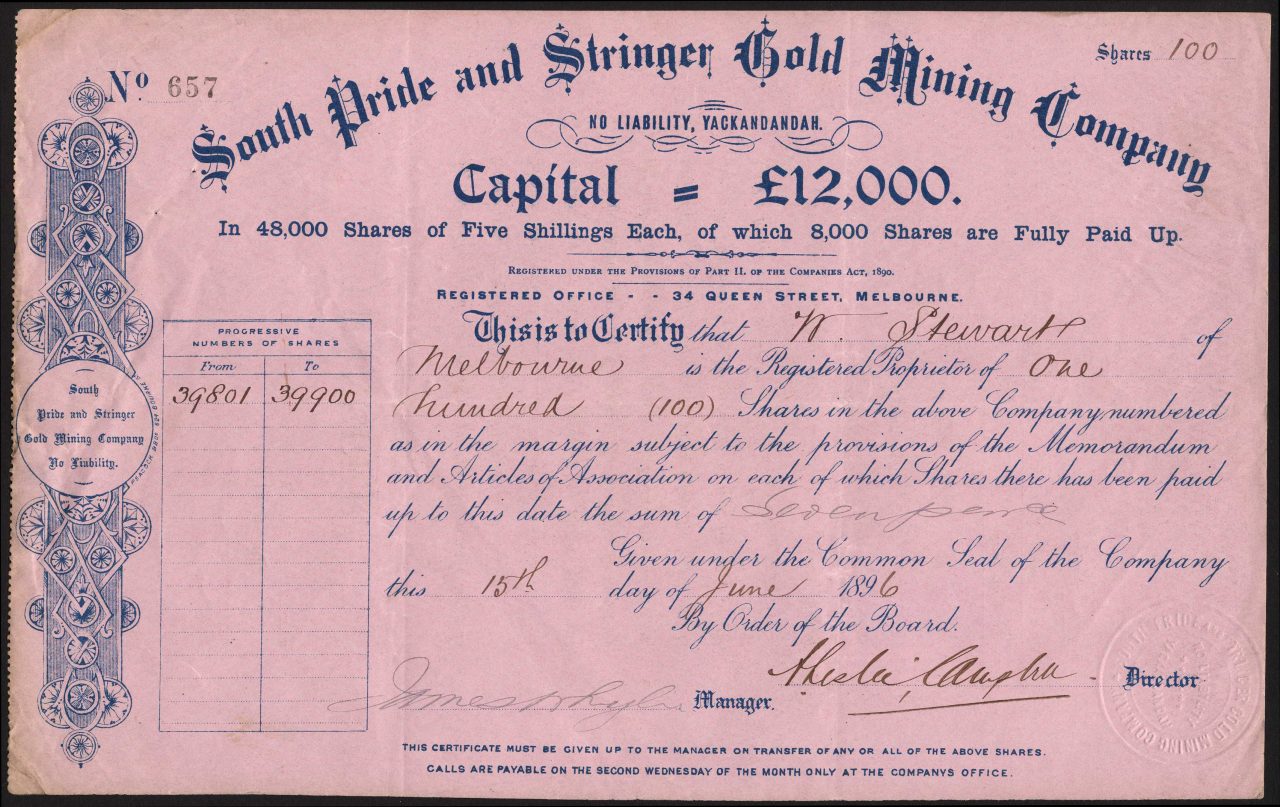 Nº 657
Shares 100
South Pride and Stringer Gold Mining Company
NO LIABILITY, YACKANDANDAH.
Capital = £12,000.
In 48,000 Shares of Five Shillings Each, of which 8,000 Shares are Fully Paid Up.
REGISTERED UNDER THE PROVISIONS OF PART II. OF THE COMPANIES ACT, 1890.
REGISTERED OFFICE - - 34 QUEEN STREET, MELBOURNE.
This is to Certify that W. Stewart of
Melbourne is the Registered Proprietor of One
hundred (100) Shares in the above Company, numbered
as in the margin subject to the provisions of the Memorandum
and Articles of Association on each of which Shares there has been paid
up to this date the sum of Sevenpence
Given under the Common Seal of the Company
this 15th day of June 1896
By Order of the Board.
Director
James Manager.
PROGRESSIVE
NUMBERS OF SHARES
From To
39801 39900
South
Pride and Stringer
Gold Mining Company
No Liability.
THIS CERTIFICATE MUST BE GIVEN UP TO THE MANAGER ON TRANSFER OF ANY OR ALL OF THE ABOVE SHARES.
CALLS ARE PAYABLE ON THE SECOND WEDNESDAY OF THE MONTH ONLY AT THE COMPANYS OFFICE.